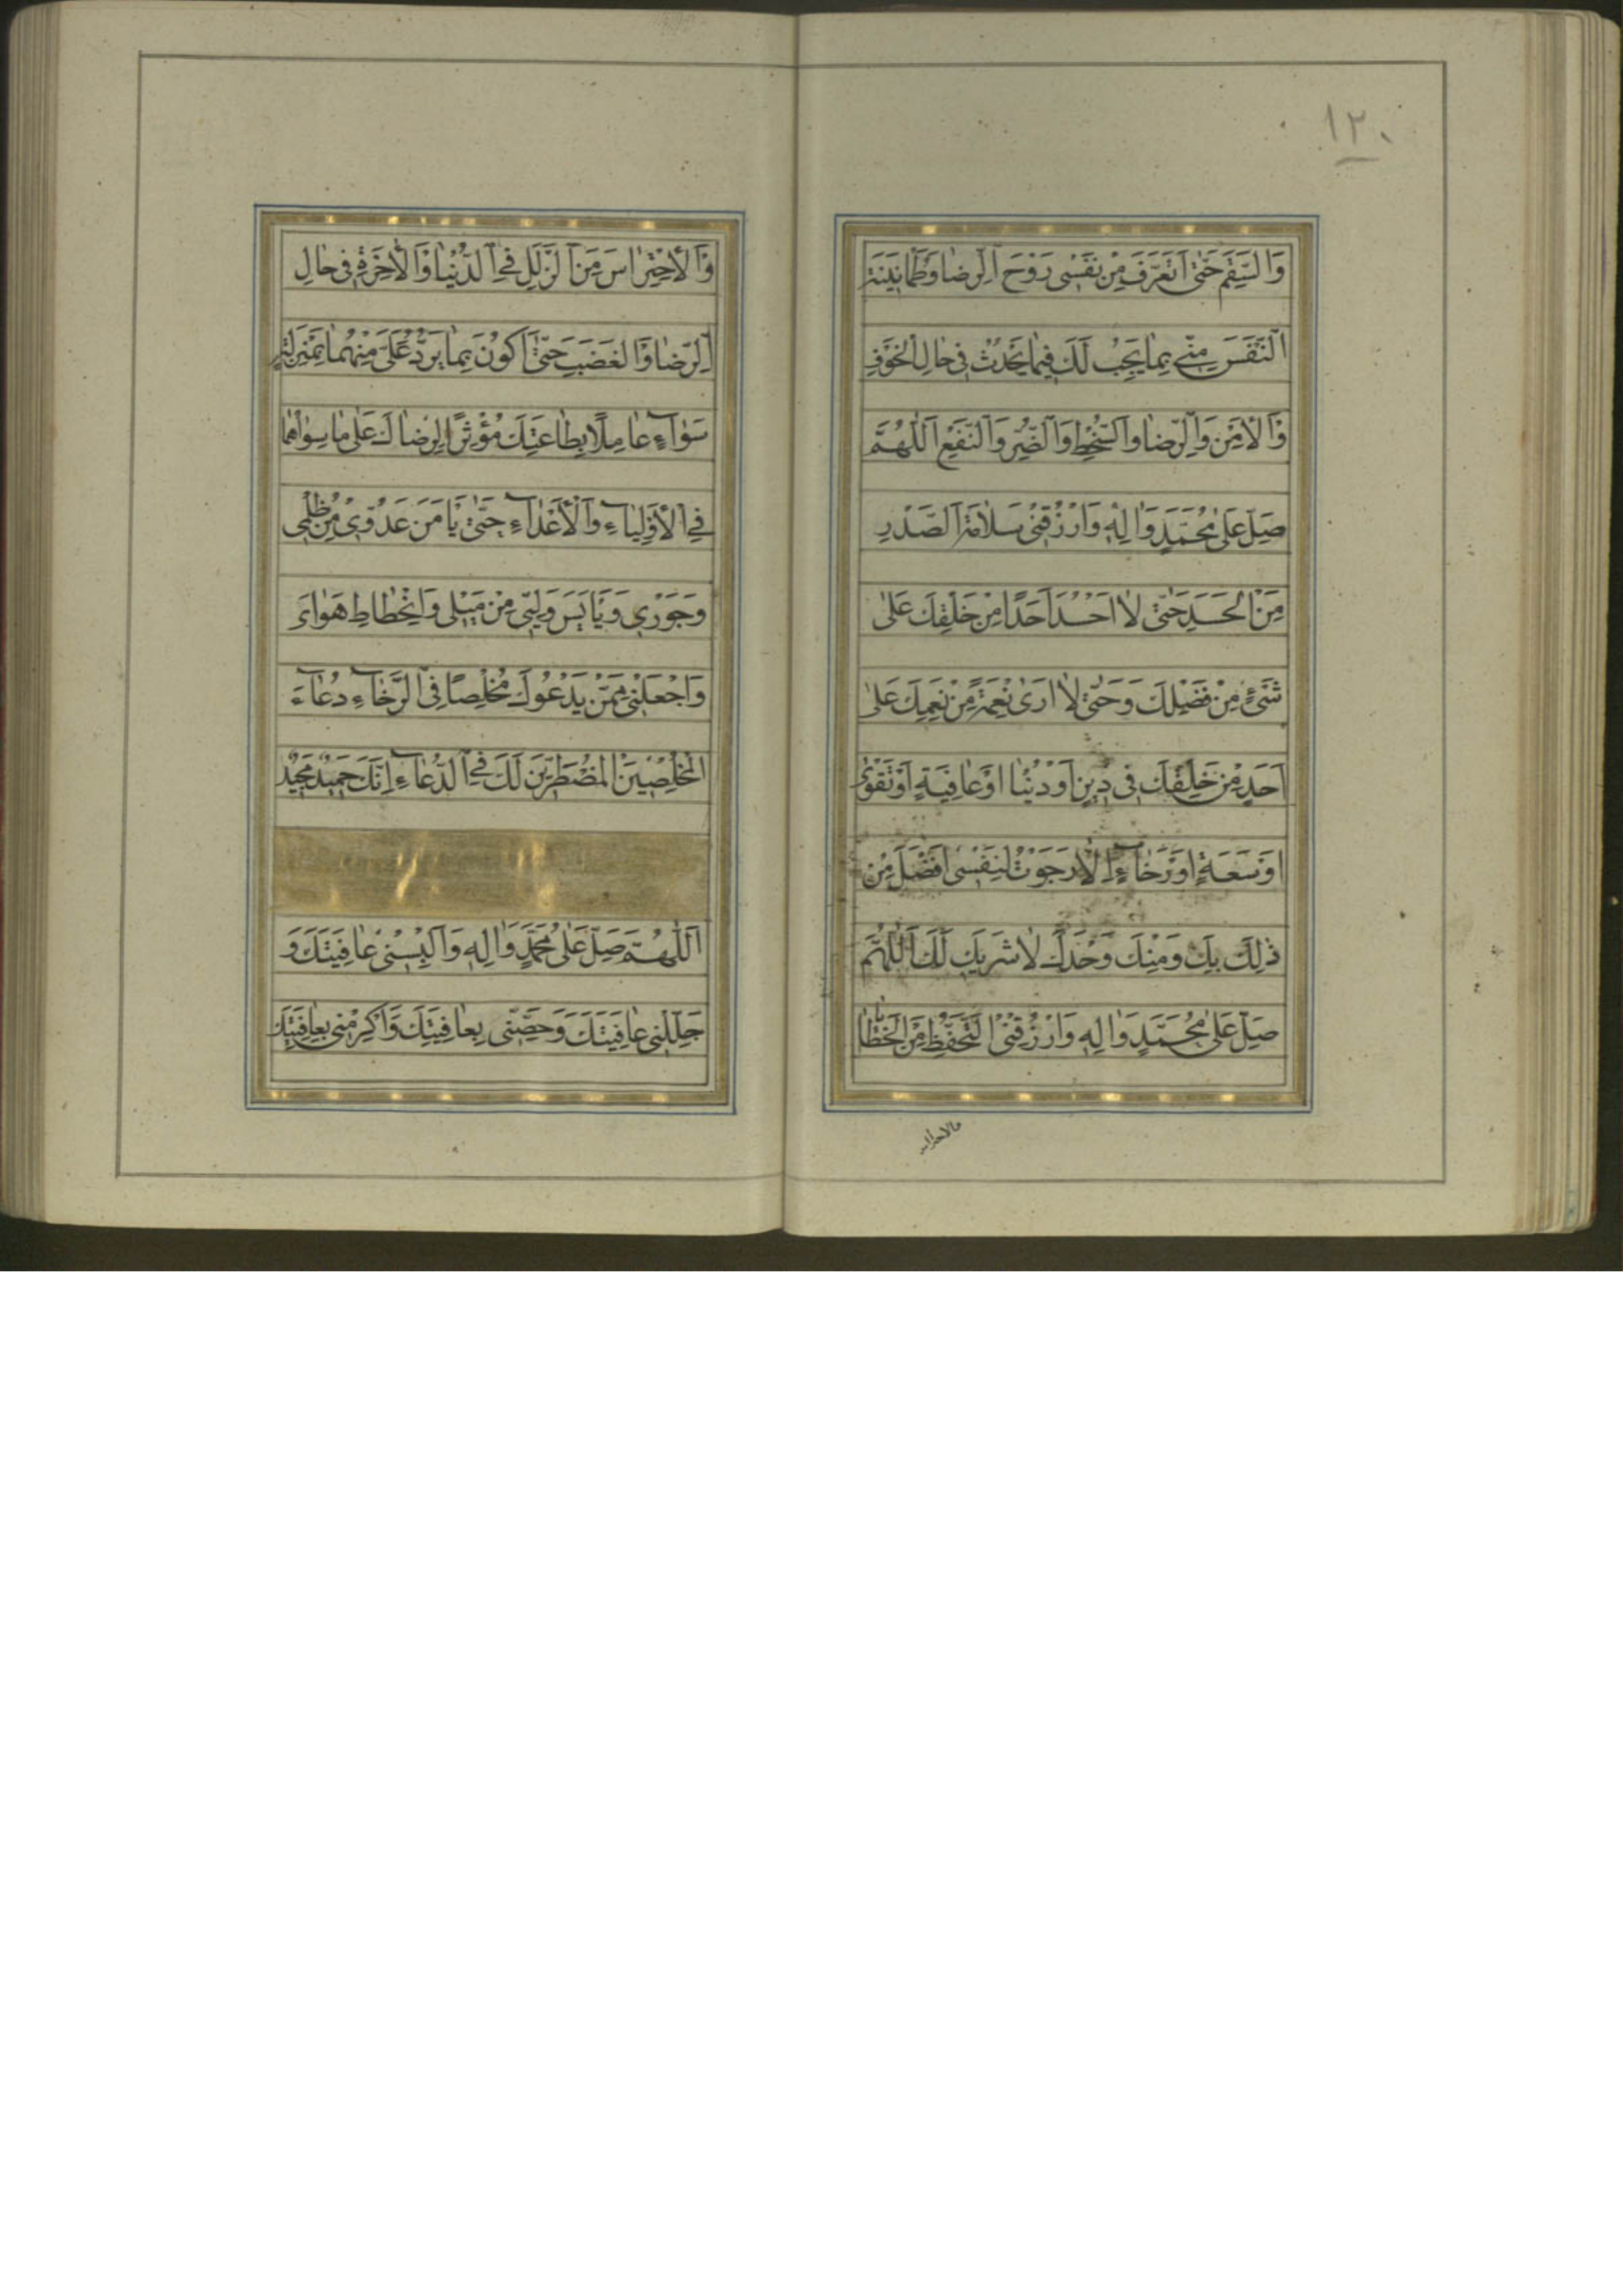 ١٢٠
وَالسَّقَمِ حَتّٰى اَتَعَرَّفَ مِنْ نَفْسِى رَوْحَ الرِّضَا وَطُمَانِينَةَ
النَّفْسِ مِنّى بِمَا يَجِبُ لَكَ فِيمَا يَحْدُثُ فِى حَالِ الْخَوْفِ
وَالْاَمْنِ وَالرِّضَا وَالسُّخْطِ وَالضُّرِّ وَالنَّفْعِ اَللّٰهُمَّ
صَلِّ عَلٰى مُحَمَّدٍ وَاٰلِهِ وَارْزُقْنِى سَلَامَةَ الصَّدْرِ
مِنَ الْحَسَدِ حَتّٰى لَا اَحْسُدَ اَحَدًا مِنْ خَلْقِكَ عَلٰى
شَىْءٍ مِنْ فَضْلِكَ وَحَتّٰى لَا اَرٰى نِعْمَةً مِنْ نِعَمِكَ عَلٰى
اَحَدٍ مِنْ خَلْقِكَ فِى دِينٍ اَوْ دُنْيَا اَوْ عَافِيَةٍ اَوْ تَقْوٰى
اَوْ سَعَةٍ اَوْ رَخَاءٍ اِلَّا رَجَوْتُ لِنَفْسِى اَفْضَلَ مِنْ
ذٰلِكَ بِكَ وَمِنْكَ وَحْدَكَ لَا شَرِيكَ لَكَ اَللّٰهُمَّ
صَلِّ عَلٰى مُحَمَّدٍ وَاٰلِهِ وَارْزُقْنِى التَّحَفُّظَ مِنَ الْخَطَايَا
والاحتراس
وَالْاِحْتِرَاسَ مِنَ الزَّلَلِ فِى الدُّنْيَا وَالْاٰخِرَةِ فِى حَالِ
الرِّضَا وَالْغَضَبِ حَتّٰى اَكُونَ بِمَا يَرِدُ عَلَىَّ مِنْهُمَا بِمَنْزِلَةٍ
سَوَاءٍ عَامِلًا بِطَاعَتِكَ مُؤْثِرًا لِرِضَاكَ عَلٰى مَا سِوَاهُمَا
فِى الْاَوْلِيَاءِ وَالْاَعْدَاءِ حَتّٰى يَاْمَنَ عَدُوّى مِنْ ظُلْمِى
وَجَوْرِى وَيَاْيَسَ وَلِيّى مِنْ مَيْلِى وَانْحِطَاطِ هَوَاىَ
وَاجْعَلْنِى مِمَّنْ يَدْعُوكَ مُخْلِصًا فِى الرَّخَاءِ دُعَاءَ
الْمُخْلِصِينَ الْمُضْطَرِّينَ لَكَ فِى الدُّعَاءِ اِنَّكَ حَمِيدٌ مَجِيدٌ
اَللّٰهُمَّ صَلِّ عَلٰى مُحَمَّدٍ وَاٰلِهِ وَاَلْبِسْنِى عَافِيَتَكَ وَ
جَلِّلْنِى عَافِيَتَكَ وَحَصِّنّى بِعَافِيَتِكَ وَاَكْرِمْنِى بِعَافِيَتِكَ